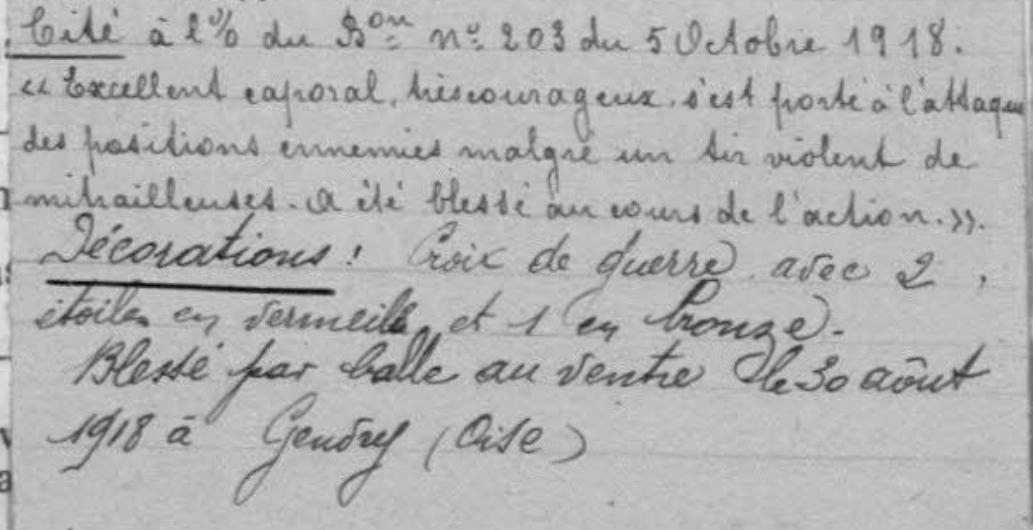 Cité à l'% du Bon nº 203 du 5 Octobre 1918.
"Excellent caporal, très courageux, s'est porté à l'attaque
des positions ennemies malgré un tir violent de
mitrailleuses. A été blessé au cours de l'action.".
Décorations : Croix de guerre avec 2
étoiles en vermeille et 1 en bronze.
Blessé par balle au ventre le 30 août
1918 à Gendry (Oise)